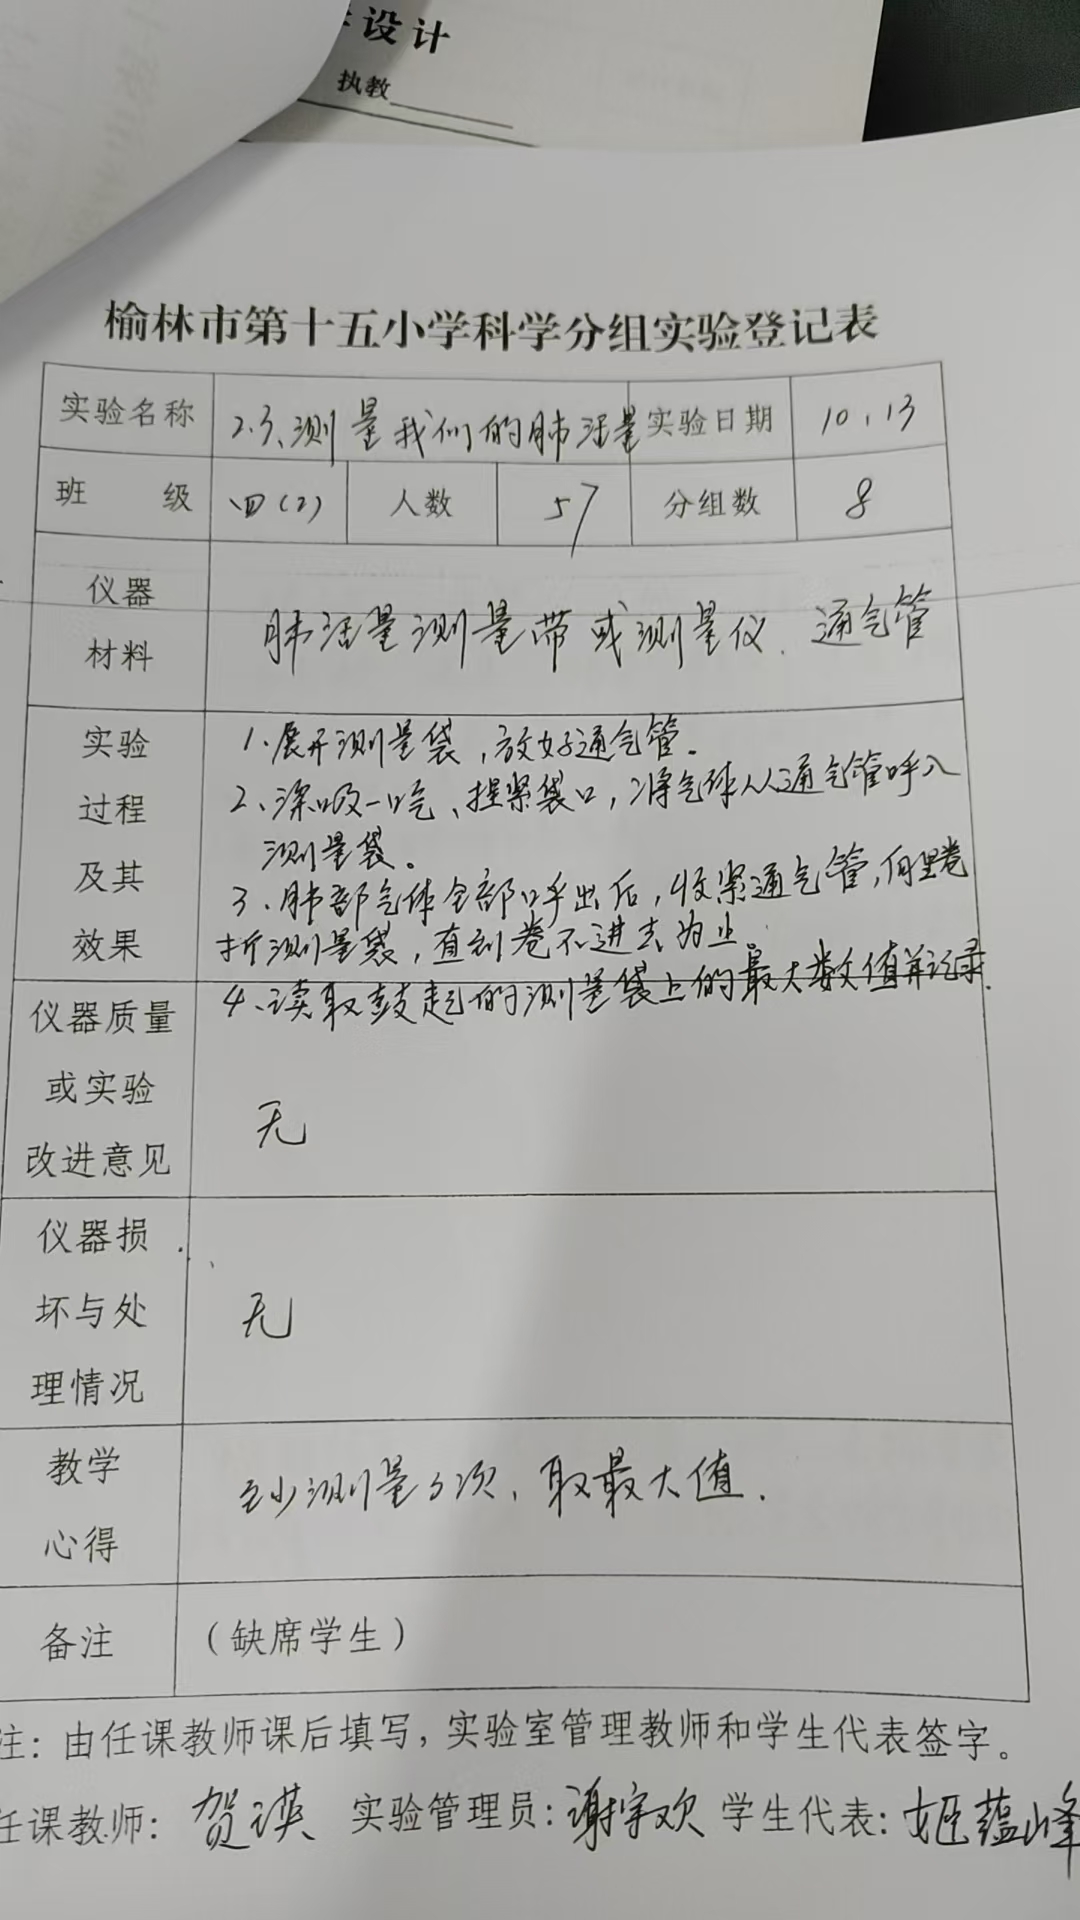 学设计
执教
榆林市第十五小学科学分组实验登记表
实验名称 2.3、测量我们的肺活量 实验日期 10.13
班 级 四(2) 人数 57 分组数 8
仪器
材料
肺活量测量带或测量仪、通气管
实验
过程
及其
效果
1、展开测量袋,放好通气管。
2、深吸一口气、捏紧袋口,将气体从通气管呼入
测量袋。
3、肺部气体全部呼出后,收紧通气管,向里卷
折测量袋,直到卷不进去为止。
4、读取鼓起的测量袋上的最大数值并记录.
仪器质量
或实验
改进意见
无
仪器损
坏与处
理情况
无
教学
心得
至少测量3次、取最大值.
备注 (缺席学生)
注:由任课教师课后填写,实验室管理教师和学生代表签字。
任课教师:贺瑛 实验管理员:谢宇欢 学生代表:姬蕴峰